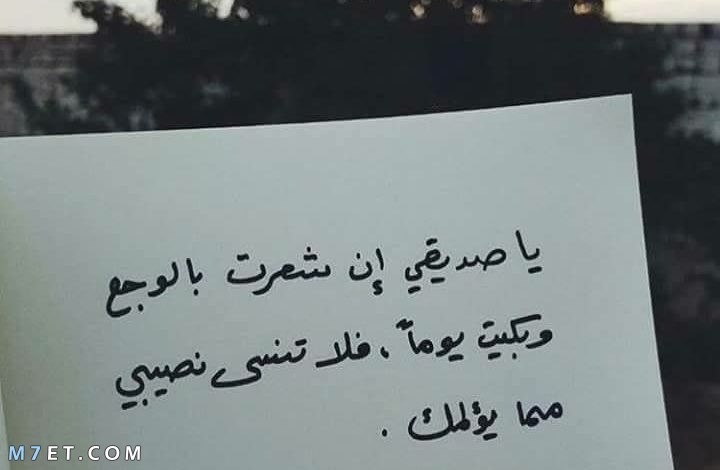 يا صديقي إن شعرت بالوجع
وبكيت يوماً ، فلا تنسى نصيبي
مما يؤلمك .
M7ET.COM